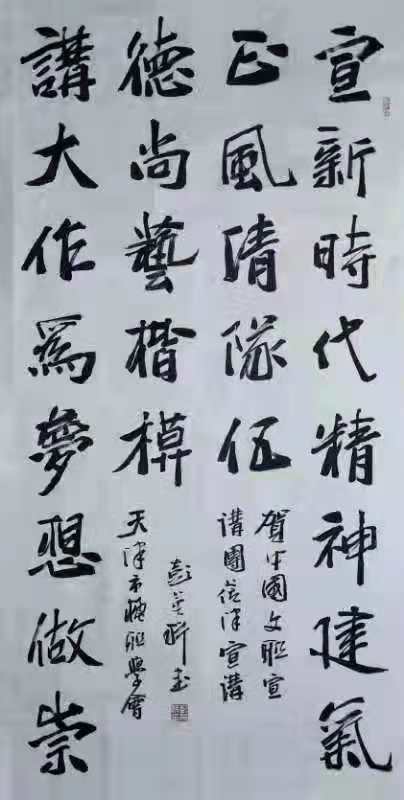 宣新時代精神建氣
正風清隊伍
賀中國文联宣
講團莅津宣講
講大作爲夢想做崇
德尚藝楷模
天津市楹联學會
彭英科书